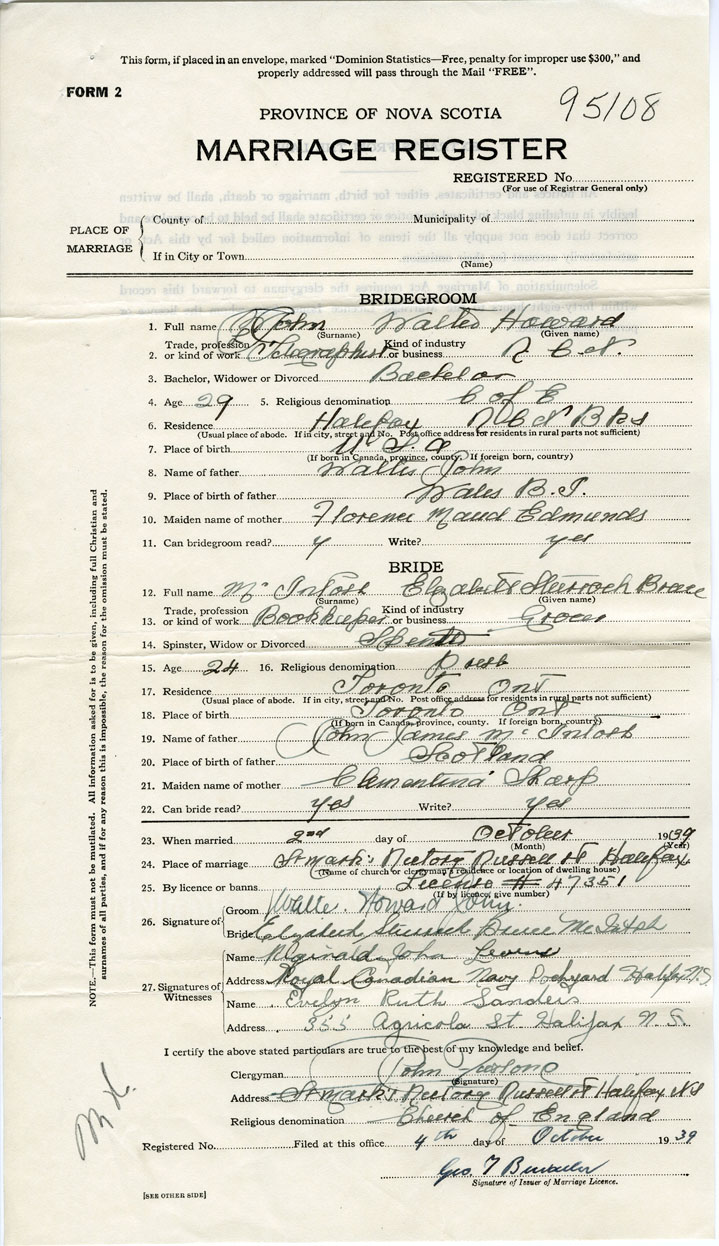 This form, if placed in an envelope, marked "Dominion Statistics—Free, penalty for improper use $300," and
properly addressed will pass through the Mail "FREE".
FORM 2
95108
PROVINCE OF NOVA SCOTIA
MARRIAGE REGISTER
REGISTERED No.
(For use of Registrar General only)
PLACE OF MARRIAGE
County of Municipality of
If in City or Town
(Name)
BRIDEGROOM
1. Full name John Walter Howard
(Surname) (Given name)
Trade, profession Kind of industry
2. or kind of work Telegraphist or business R C N.
3. Bachelor, Widower or Divorced Bachelor
4. Age 29 5. Religious denomination C of E
6. Residence Halifax R C N Bks
(Usual place of abode. If in city, street and No. Post office address for residents in rural parts not sufficient)
7. Place of birth U S A
(If born in Canada, province, county. If foreign born, country)
8. Name of father Walter John
9. Place of birth of father Wales B. I.
10. Maiden name of mother Florence Maud Edmunds
11. Can bridegroom read? y Write? yes
BRIDE
12. Full name Mc Intosh Elizabeth Sturrock Bruce
(Surname) (Given name)
Trade, profession Kind of industry
13. or kind of work Bookkeeper or business Grocer
14. Spinster, Widow or Divorced
15. Age 24 16. Religious denomination Presb
17. Residence Toronto Ont
(Usual place of abode. If in city, street and No. Post office address for residents in rural parts not sufficient)
18. Place of birth Toronto Ont
(If born in Canada, province, county. If foreign born, country)
19. Name of father John James Mc Intosh
20. Place of birth of father Scotland
21. Maiden name of mother Clementina Sharp
22. Can bride read? yes Write? yes
23. When married 2nd day of October 1939
(Month) (Year)
24. Place of marriage St Mark's Rectory Russell St Halifax
(Name of church or clergyman's residence or location of dwelling house)
25. By licence or banns License # 47351
(If by licence, give number)
26. Signature of
Groom Walter Howard John.
Bride Elizabeth Sturrock Bruce McIntosh
27. Signatures of Witnesses
Name Reginald John
Address Royal Canadian Navy Dockyard Halifax N.S.
Name Evelyn Ruth Sanders
Address 355 Agricola St Halifax N. S.
I certify the above stated particulars are true to the best of my knowledge and belief.
Clergyman John
(Signature)
Address St Mark's Rectory Russell St Halifax NS
Religious denomination Church of England
Registered No. Filed at this office 4th day of October 1939
Geo. T
Signature of Issuer of Marriage Licence.
[SEE OTHER SIDE]
NOTE.—This form must not be mutilated. All information asked for is to be given, including full Christian and
surnames of all parties, and if for any reason this is impossible, the reason for the omission must be stated.